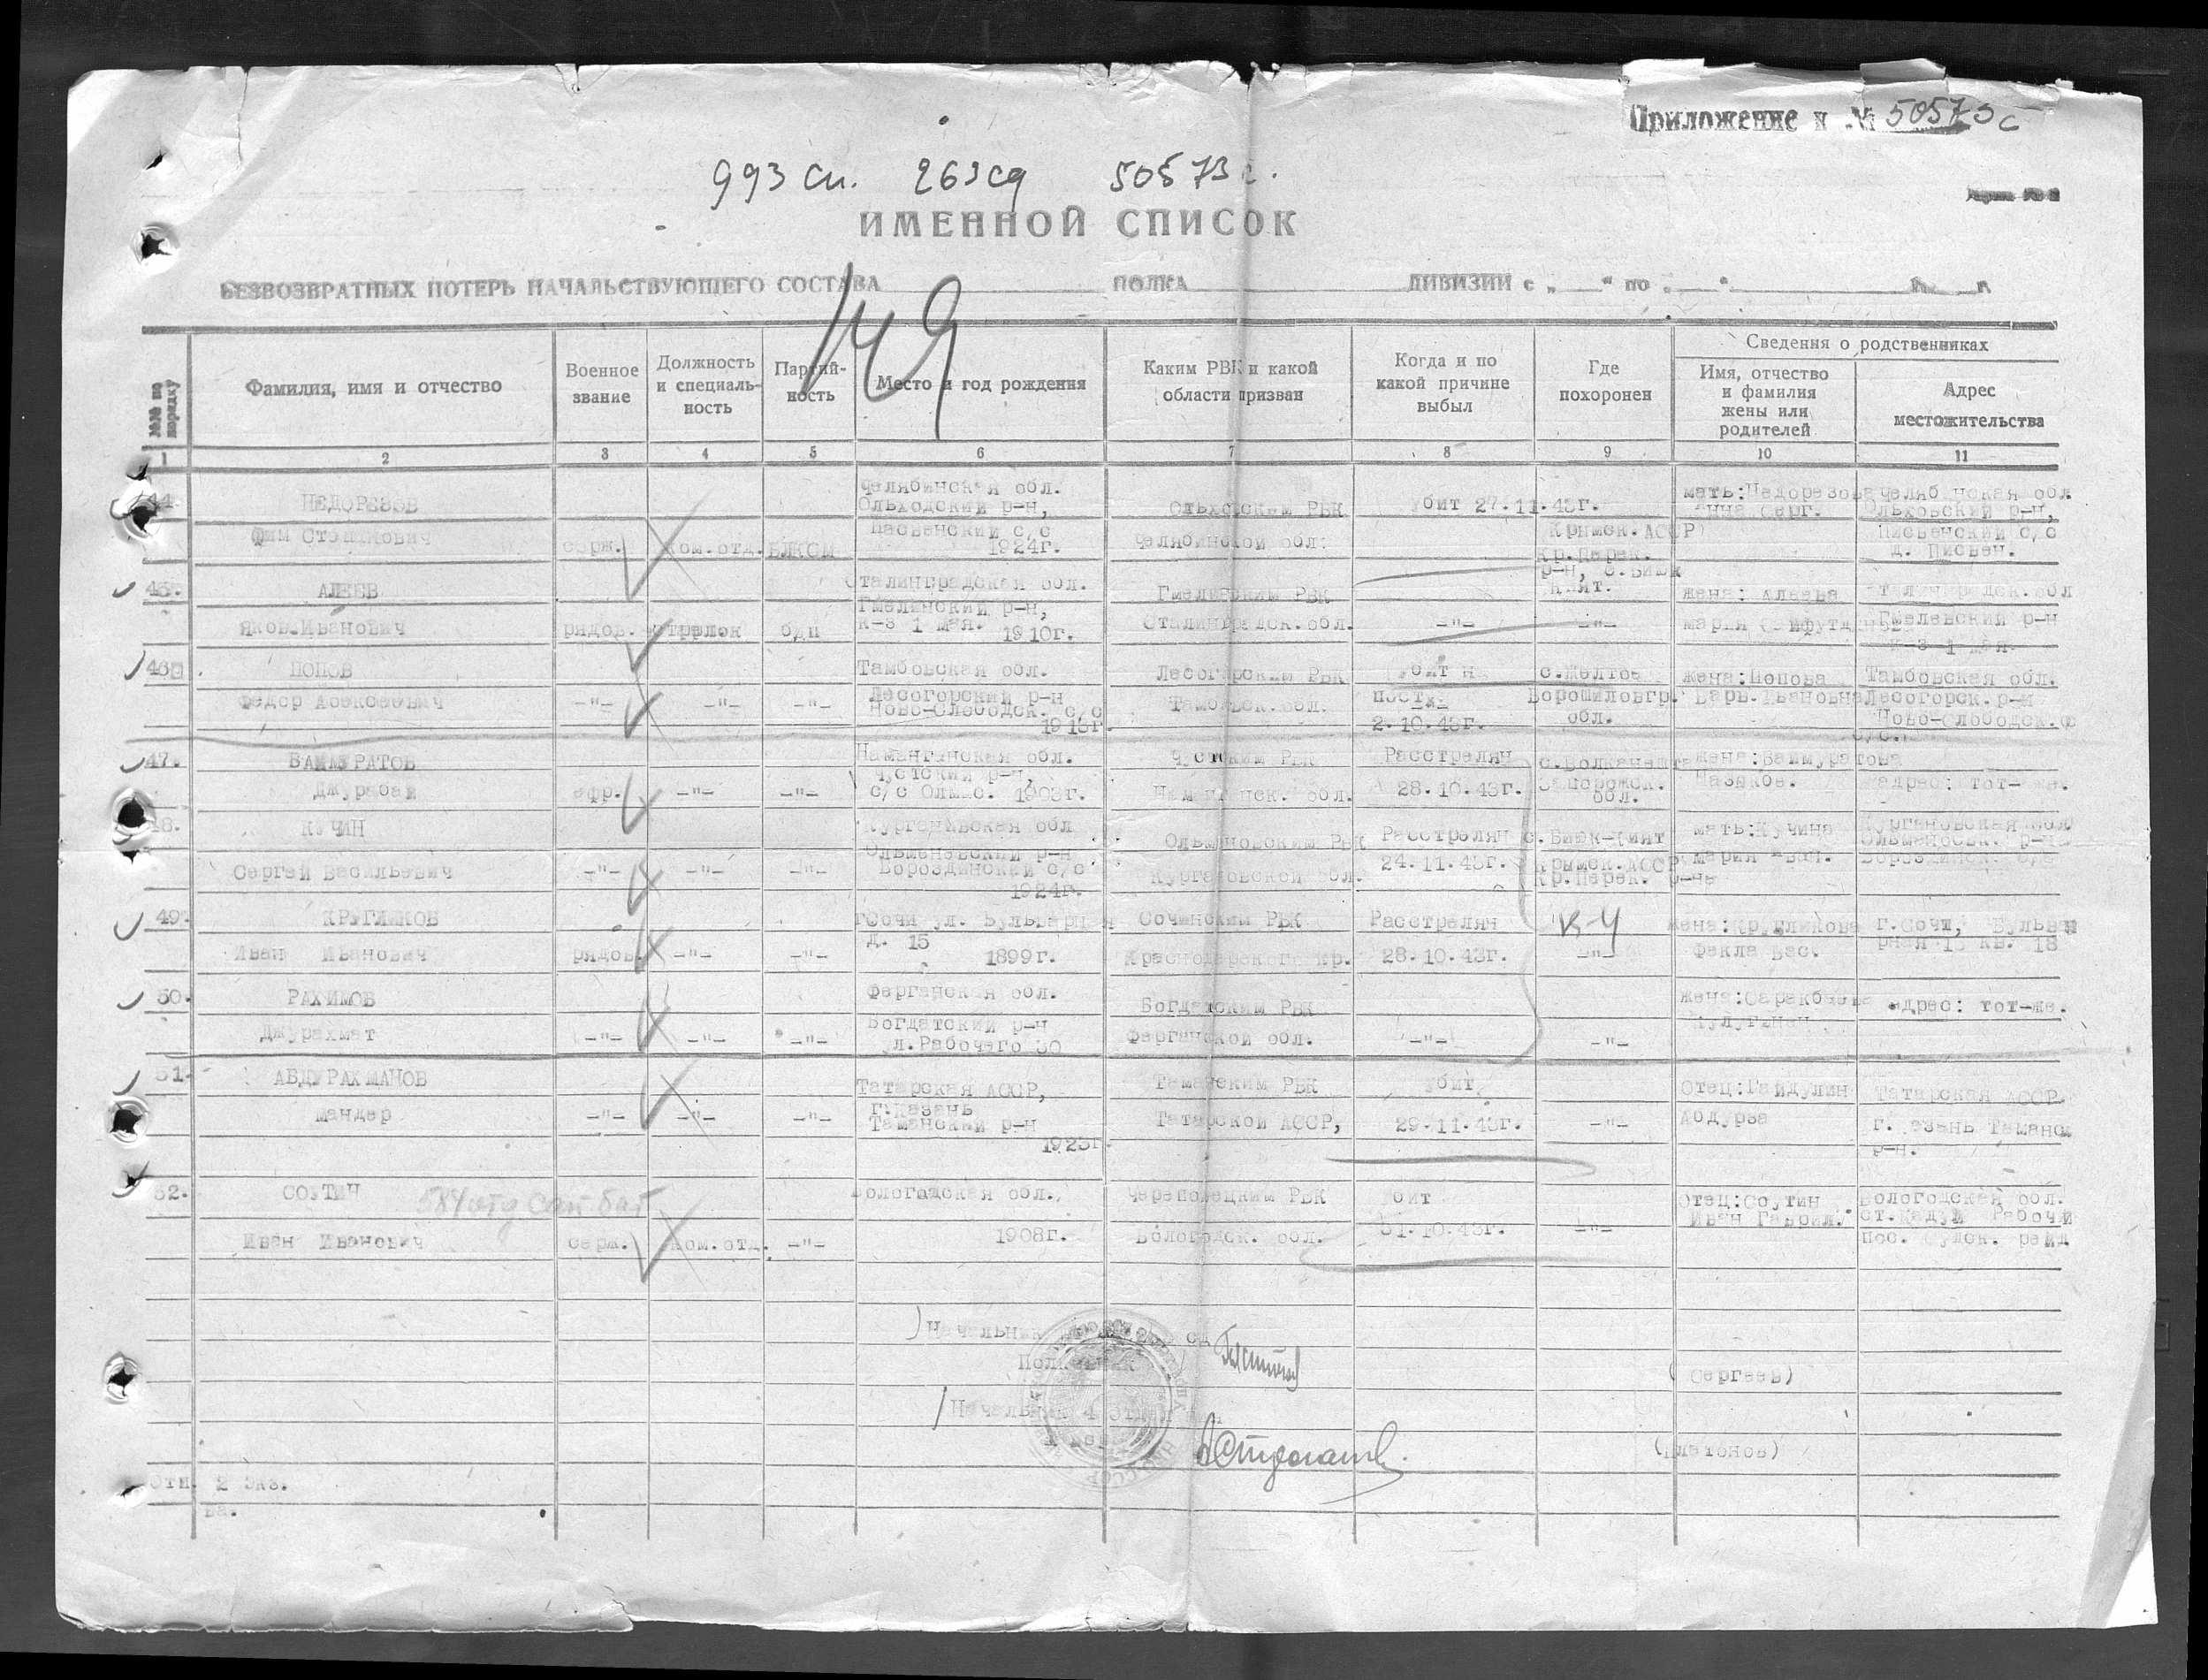 Приложение к № 50573с
993 сп. 263 сд 50573с.
ИМЕННОЙ СПИСОК
БЕЗВОЗВРАТНЫХ ПОТЕРЬ НАЧАЛЬСТВУЮЩЕГО СОСТАВА ПОЛКА ДИВИЗИИ с „ “ по „ “ г.
149
№№ по порядку
Фамилия, имя и отчество
Военное звание
Должность и специальность
Партийность
Место и год рождения
Каким РВК и какой области призван
Когда и по какой причине выбыл
Где похоронен
Сведения о родственниках
Имя, отчество и фамилия жены или родителей
Адрес местожительства
1 2 3 4 5 6 7 8 9 10 11
44. НЕДОРЕЗОВ
серж. ком.отд. ВЛКСМ
Челябинская обл.
Ольховский р-н,
с/с
1924г.
Ольховским РВК
Челябинской обл.
убит 27.11.43г.
Крымск.АССР
Кр.Перек.
р-н, с.Биюк
Кият.
мать:Недорезова
Анна Серг.
Челябинская обл
Ольховский р-н,
с/с
45. АЛЕЕВ
Яков Иванович
рядов. стрелок б/п
Сталинградская обл.
Гмелинский р-н,
к-з 1 мая. 1910г.
Гмелинским РВК
Сталинградск.обл.
-"- -"-
жена: Алеева
Мария
Сталинградск.обл
Гмелинский р-н
к-з 1 мая.
46. ПОПОВ
Федор Алексеевич
-"- -"- -"-
Тамбовская обл.
Лесогорский р-н
Ново-Слободск. с/с
1913г.
Лесогорским РВК
Тамбовск.обл.
2.10.43г.
с.Желтое
Ворошиловгр.
обл.
жена:Попова
Варв.Ивановна
Тамбовская обл.
Лесогорск.р-н
Ново-Слободск.
с/с.
47. БАЙМУРАТОВ
Джурабай
ефр. -"- -"-
Наманганская обл.
Чустский р-н,
с/с Олмас. 1903г.
Чустским РВК
Наманганск. обл.
Расстрелян
28.10.43г.
Запорожск.
обл.
жена:Баймуратова
адрес: тот-же.
48. КУЧИН
Сергей Васильевич
-"- -"- -"-
обл
р-н
Бороздинский с/с
1924г.
РВК
обл.
Расстрелян
24.11.43г.
с.Биюк-Кият
Крымск.АССР
Кр.Перек. р-на
мать:Кучина
Мария
49. КРУГЛИКОВ
Иван Иванович
рядов. -"- -"-
г.Сочи ул. Бульварная
д. 15
1899г.
Сочинским РВК
Краснодарского кр.
Расстрелян
28.10.43г.
К-Ч
-"-
жена:Кругликова
Фекла Вас.
г.Сочи, Бульва
рная 15 кв. 18
50. РАХИМОВ
Джурахмат
-"- -"- -"-
Ферганская обл.
Богдатский р-н
ул.Рабочего 30
Богдатским РВК
Ферганской обл.
-"- -"-
адрес: тот-же.
51. АБДУРАХМАНОВ
Мандер
-"- -"- -"-
Татарская АССР,
г.Казань
Таманский р-н
1923г.
Таманским РВК
Татарской АССР,
убит
29.11.43г.
-"-
Отец:Гайдулин
Абдурза
Татарская АССР
г. Казань Таманск
р-н.
52. СОУТИН
584 отд сап бат
Иван Иванович
серж. ком.отд. -"-
Вологодская обл.
1908г.
Череповецким РВК
Вологодск. обл.
убит
31.10.43г.
-"-
Отец:Соутин
Иван Гаврил.
Вологодская обл.
ст.Кадуй Рабочий
пос.
Начальник сд
Полковник
(Сергеев)
Начальник 4 отдел
(Платонов)
Отп. 2 экз.
ва.